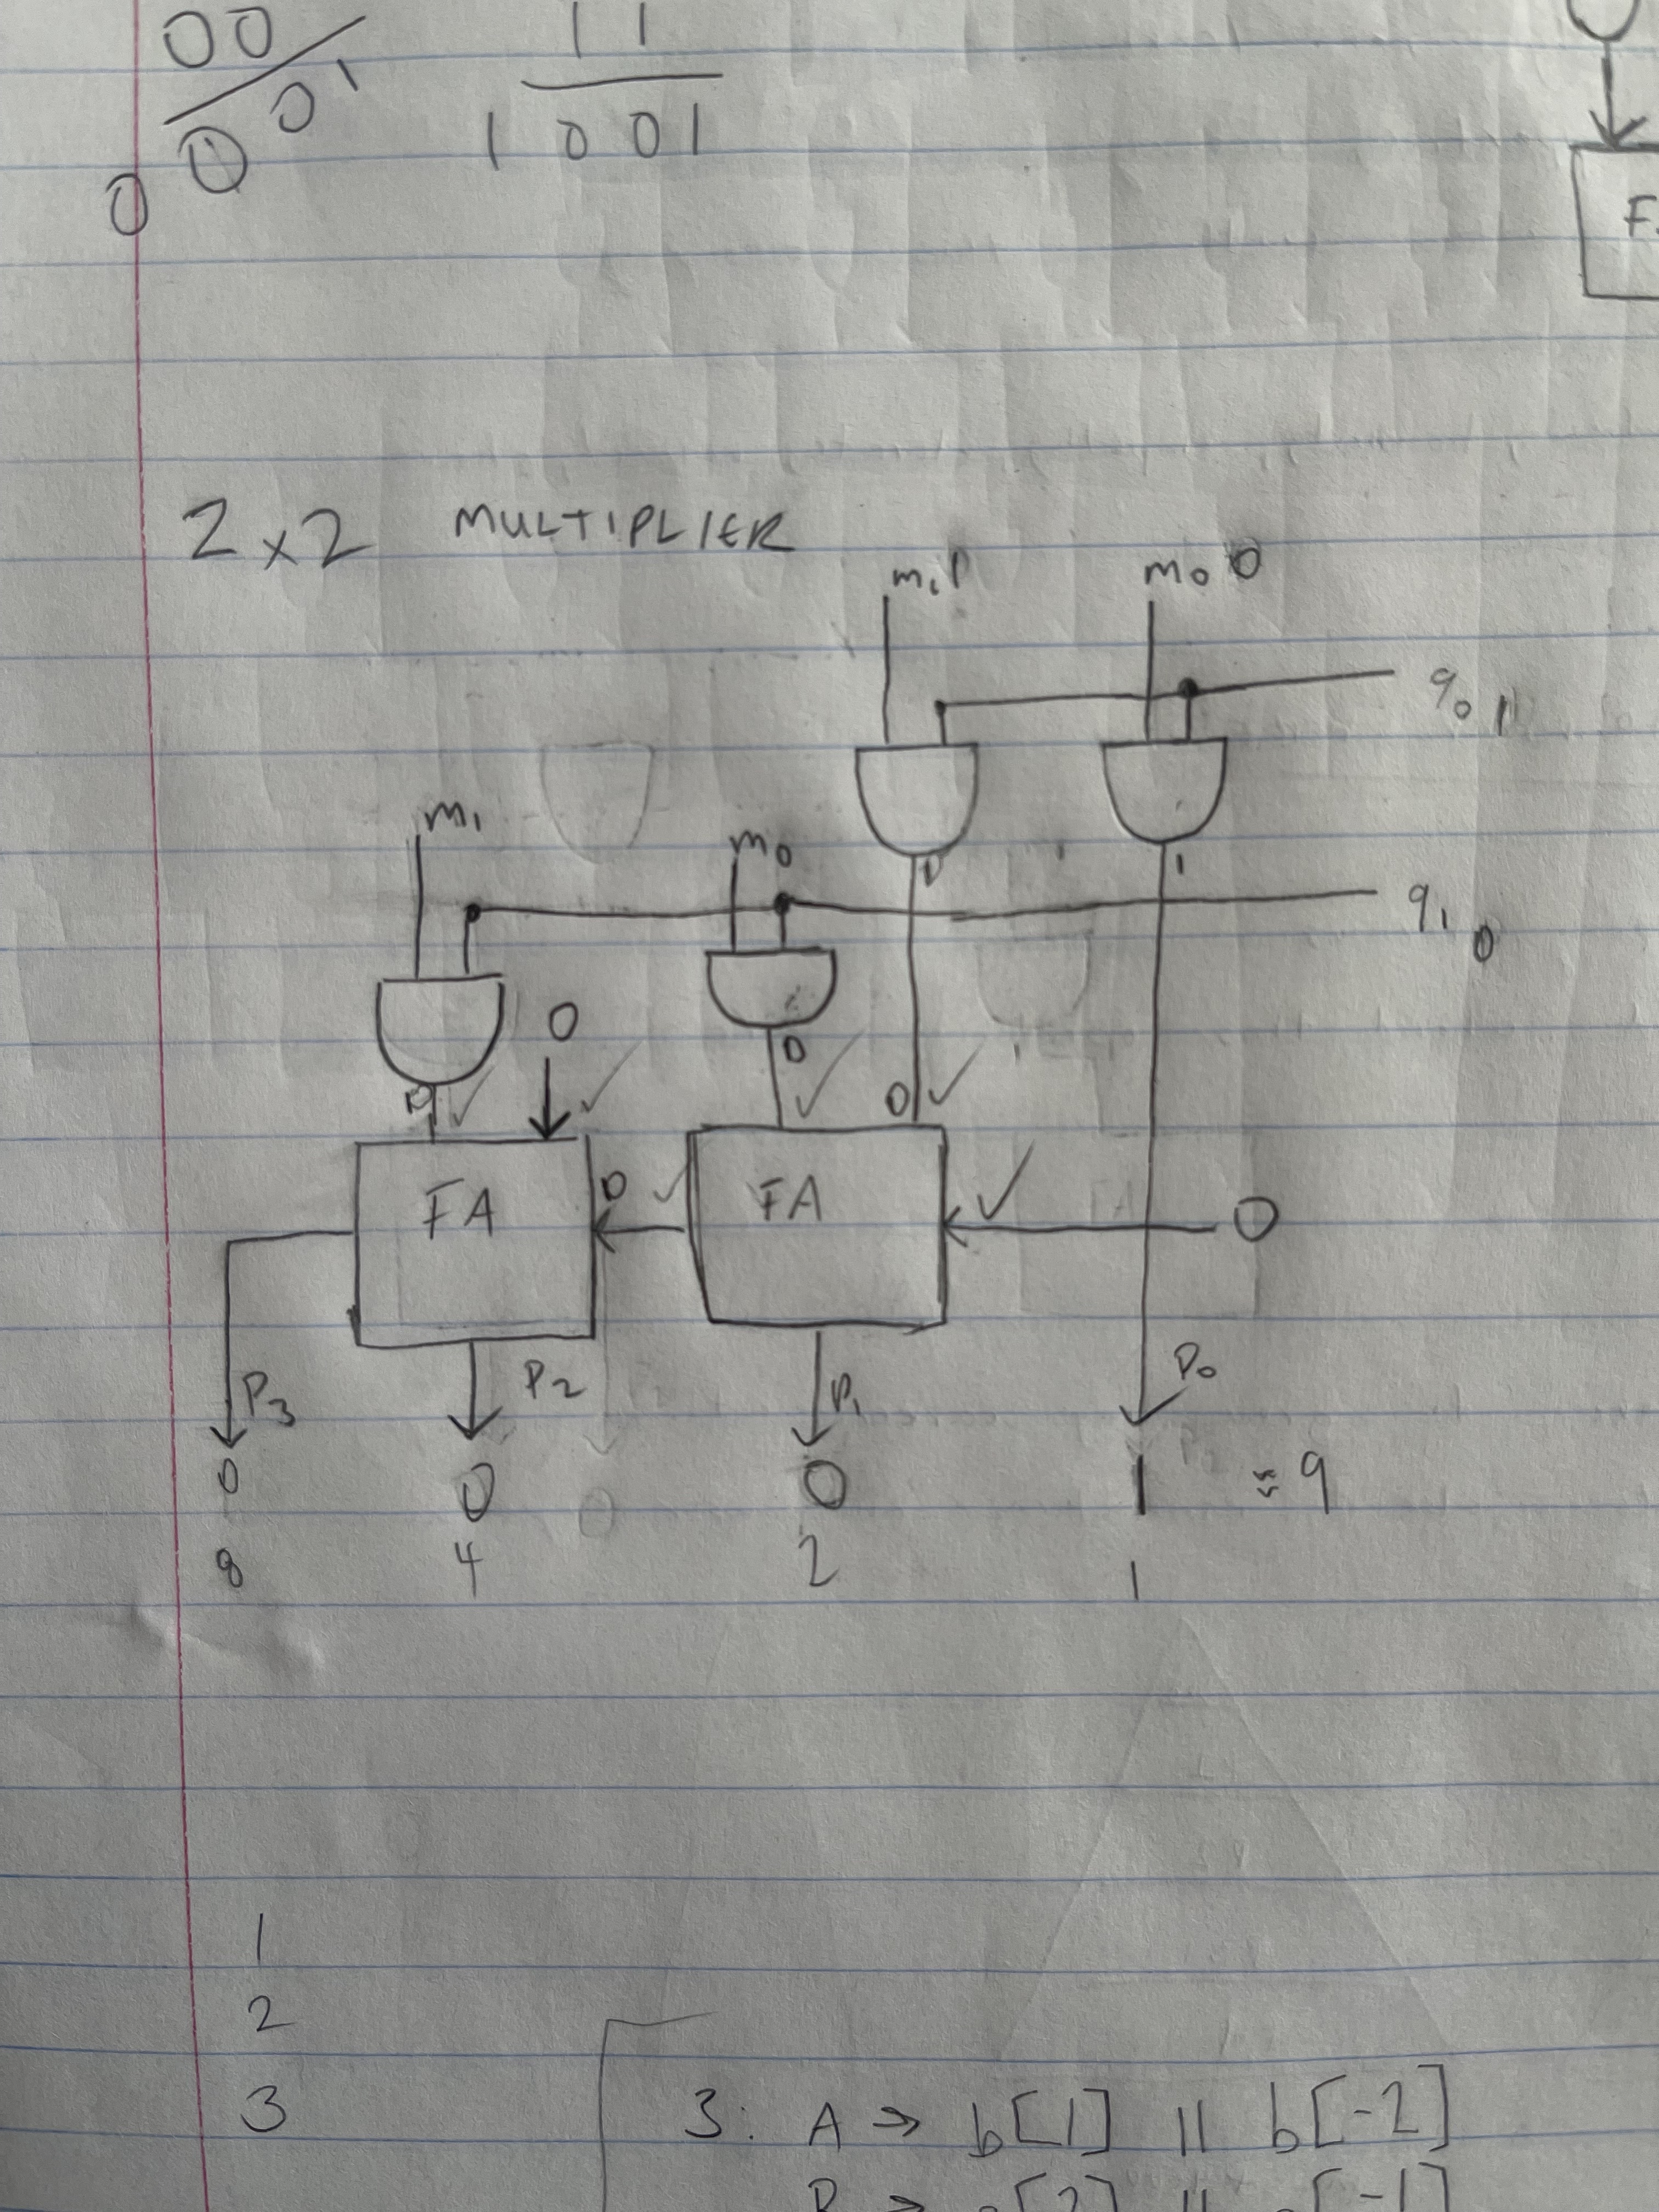 00 11
0 0 0 1 1 0 0 1
2 x 2 MULTIPLIER
m₁ 1 m₀ 0
q₀ 1
m₁ m₀ 1
q₁ 0
0 0
0 0
FA 0 FA 0
P₃ P₂ P₁ P₀
0 0 0 1 = 9
8 4 2 1
1
2
3
3. A → b[1] || b[-2]